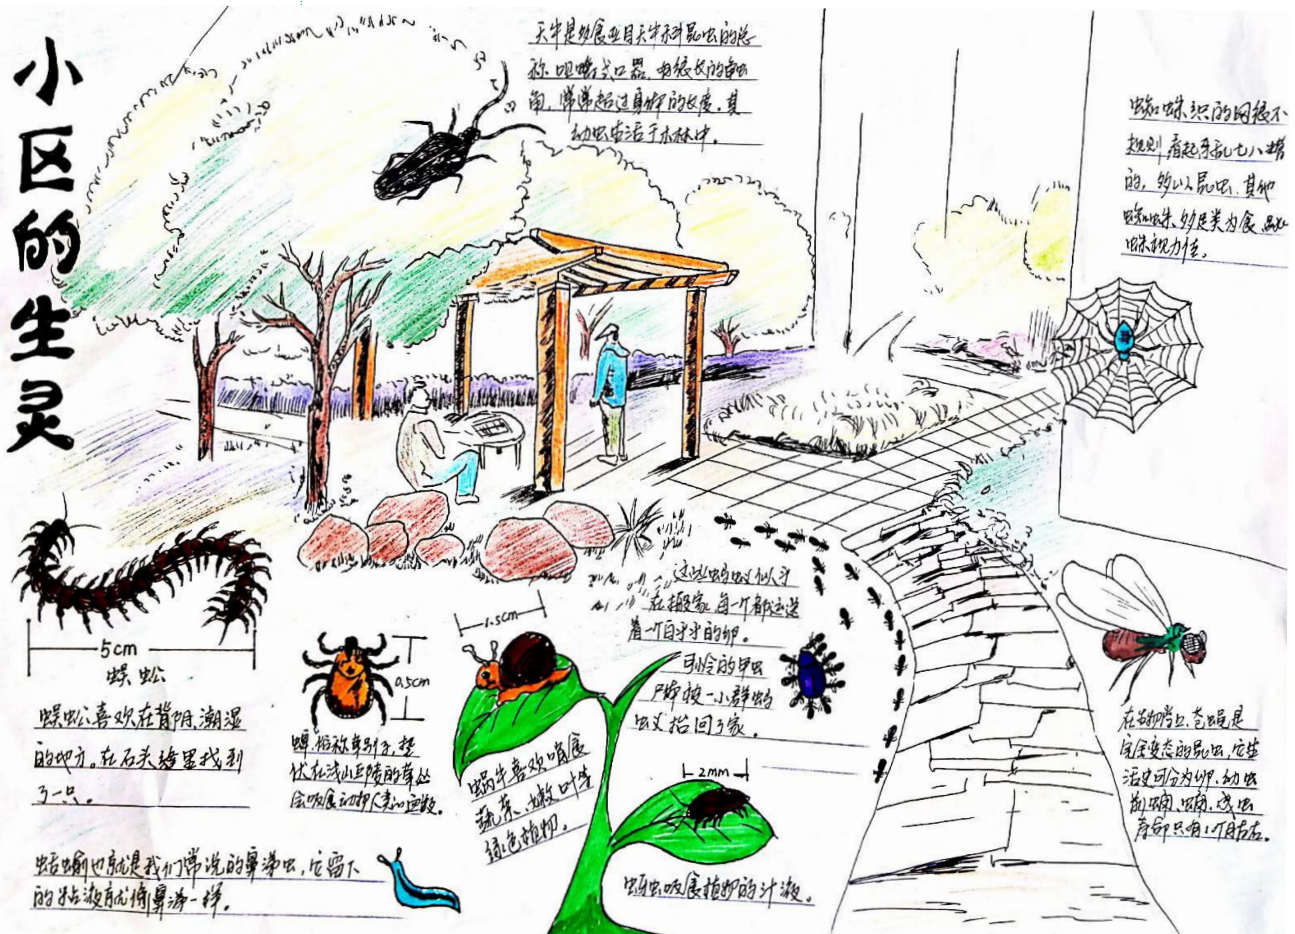 小区的生灵
天牛是多食亚目天牛科昆虫的总
称，咀嚼式口器，有很长的触
角，常常超过身体的长度，其
幼虫生活于木林中。
蜘蛛织的网很不
规则，看起来乱七八糟
的，多以昆虫、其他
蜘蛛、多足类为食
蛛视力佳。
5cm
蜈蚣
蜈蚣喜欢在背阴、潮湿
的地方。在石头缝里找到
了一只。
0.5cm
蜱，俗称草别子，蛰
伏在浅山丘陵的草丛
会吸食动物人类血液。
1.5cm
蜗牛喜欢啃食
蔬菜、嫩叶等
绿色植物。
这些蚂蚁似乎
在搬家，每一个都还送
着一个白乎乎的卵。
可怜的甲虫
尸体被一小群蚂
蚁抬回了家。
2mm
蚜虫吸食植物的汁液。
苍蝇是
完全变态的昆虫，它生
活史可分为卵、幼虫
前蛹、蛹、成虫
寿命只有1个月左右。
蛞蝓也就是我们常说的鼻涕虫，它留下
的粘液就像鼻涕一样。